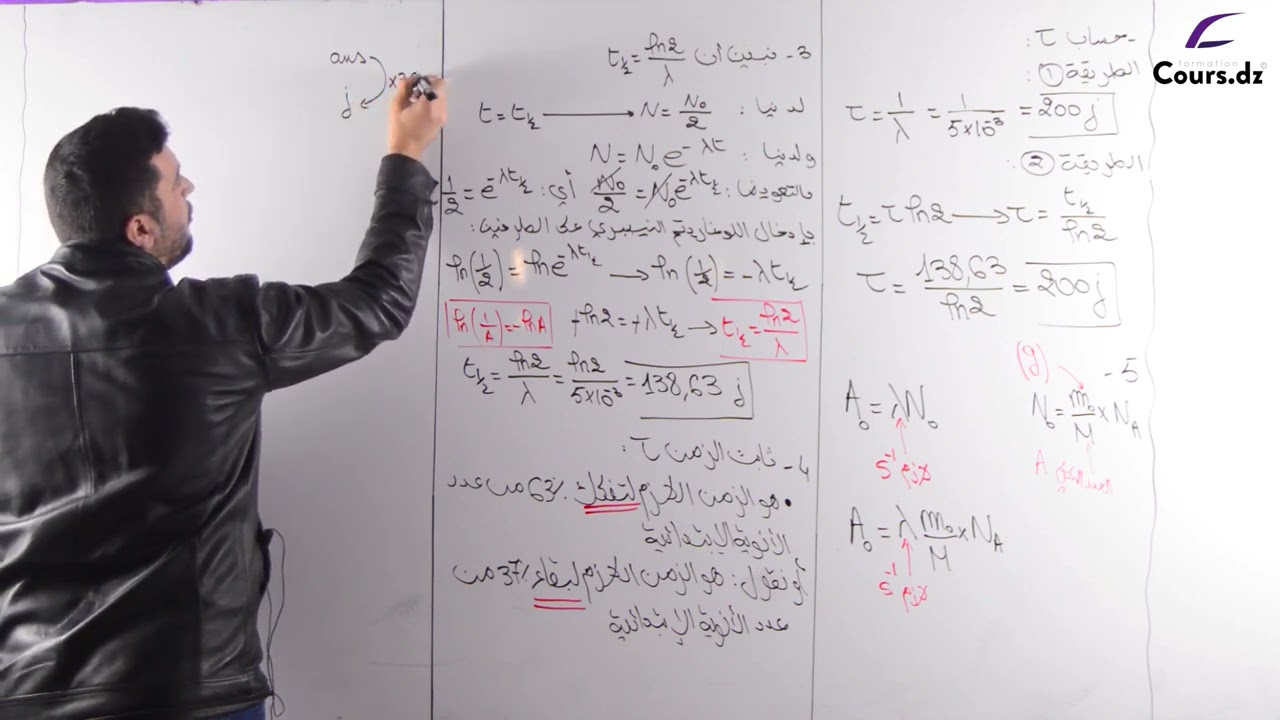 formation
Cours.dz
ans
j
3- نبين أن t½ = ln2/λ
لدينا: N = N₀/2 ⟵ t = t½
ولدينا: N = N₀ e^-λt
بالتعويض: N₀/2 = N₀e^-λt½ أي: 1/2 = e^-λt½
بإدخال اللوغاريتم النيبيري على الطرفين:
ln(1/2) = ln e^-λt½ → ln(1/2) = -λt½
ln(1/A) = -lnA
+ln2 = +λt½ → t½ = ln2/λ
t½ = ln2/λ = ln2/5×10^-3 = 138,63 j
4- ثابت الزمن τ:
• هو الزمن اللازم لتفكك 63% من عدد
الأنوية الإبتدائية
أو نقول: هو الزمن اللازم لبقاء 37% من
عدد الأنوية الإبتدائية
- حساب τ:
الطريقة ①:
τ = 1/λ = 1/5×10^-3 = 200 j
الطريقة ②:
t½ = τ ln2 → τ = t½/ln2
τ = 138,63/ln2 = 200 j
5-
(g)
N₀ = m₀/M × N_A
A
A₀ = λN₀
لازم s^-1
A₀ = λ m₀/M × N_A
لازم s^-1